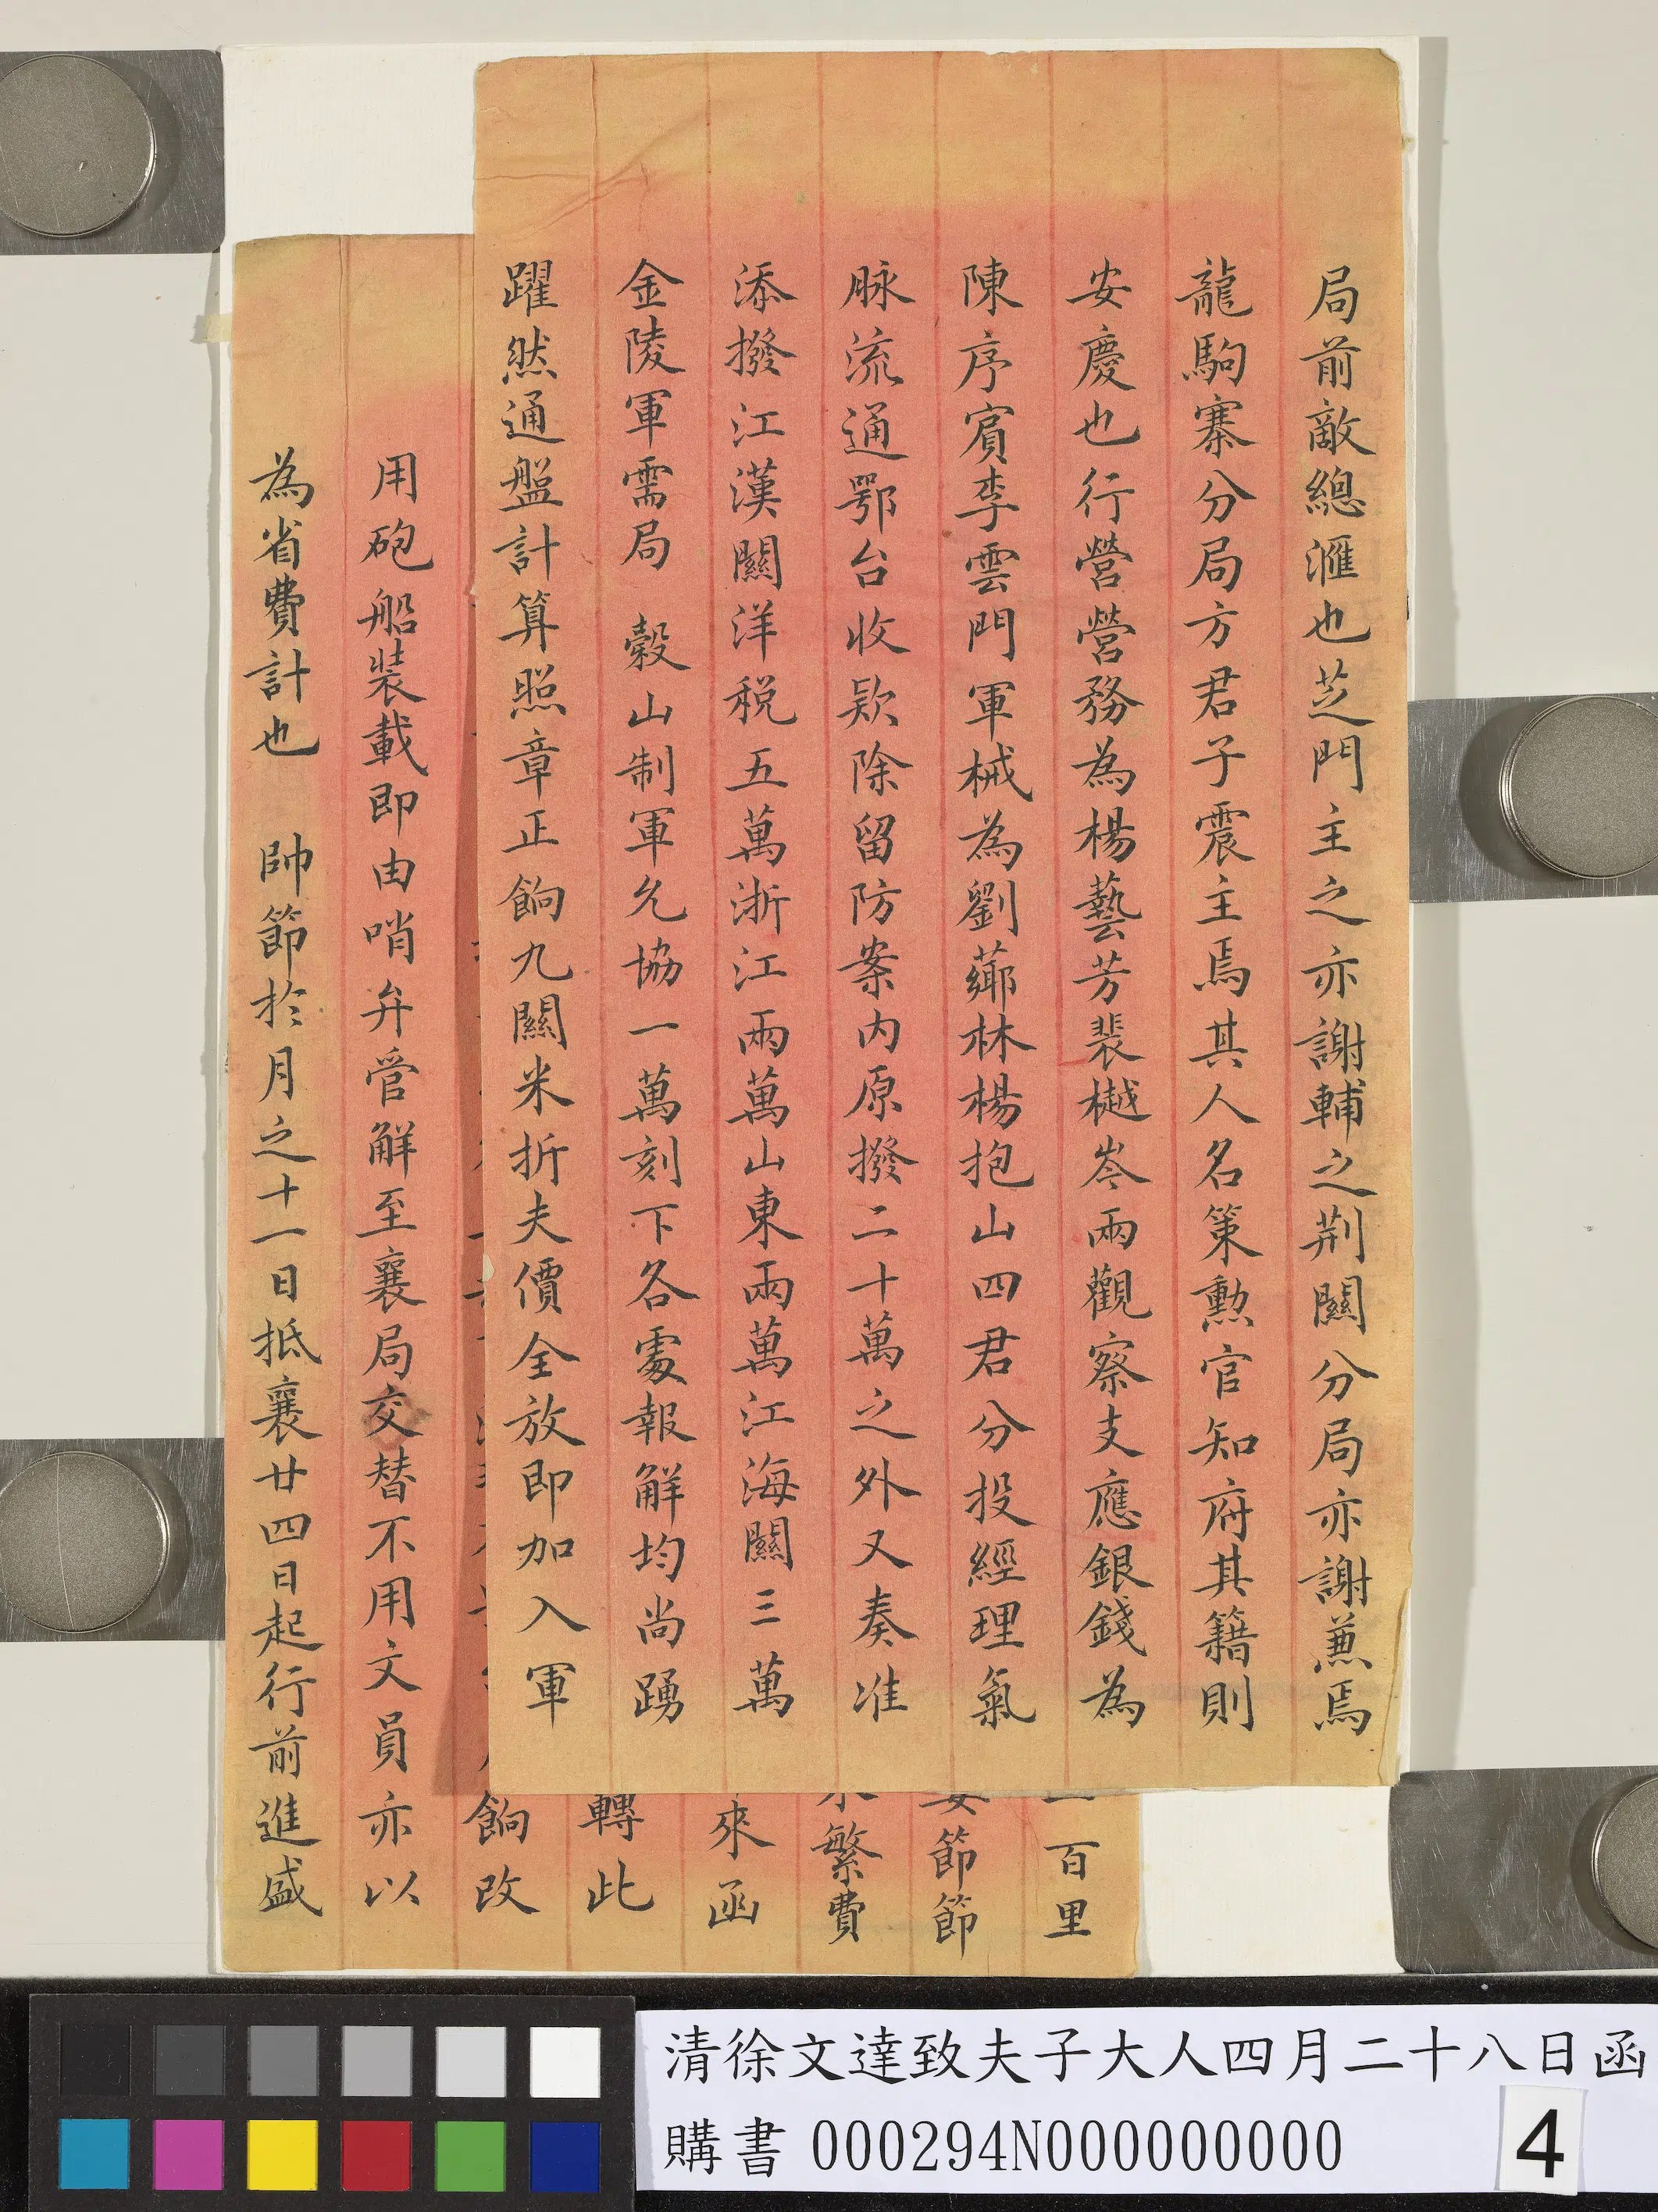 局前敵總滙也芝門主之亦謝輔之荆關分局亦謝兼焉
龍駒寨分局方君子震主焉其人名策勳官知府其籍則
安慶也行營營務為楊藝芳裴樾岑兩觀察支應銀錢為
陳序賔李雲門軍械為劉薌林楊抱山四君分投經理氣
脉流通鄂台收欵除留防案内原撥二十萬之外又奏准
添撥江漢關洋税五萬浙江兩萬山東兩萬江海關三萬
金陵軍需局 穀山制軍允協一萬刻下各處報解均尚踴
躍然通盤計算照章正餉九關米折夫價全放即加入軍
百里
節節
繁費
來函
轉此
餉改
用砲船裝載即由哨弁管解至襄局交替不用文員亦以
為省費計也 帥節於月之十一日抵襄廿四日起行前進盛
清徐文達致夫子大人四月二十八日函
購書 000294N000000000
4